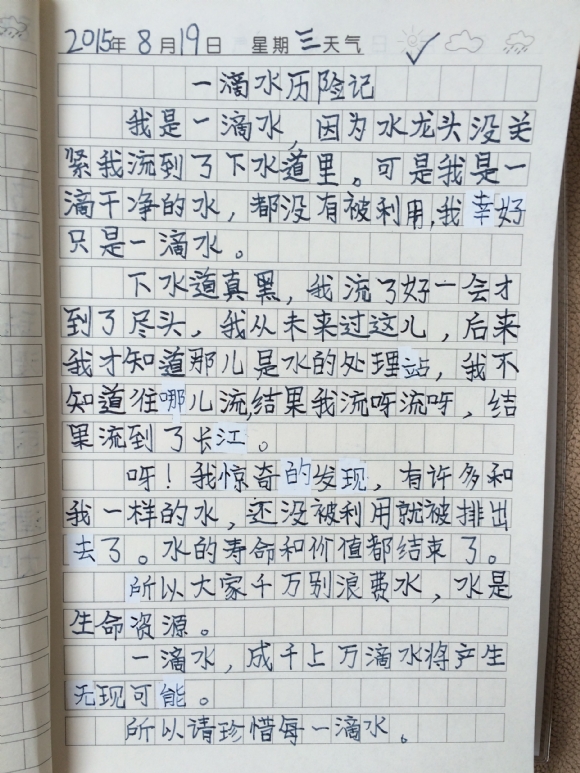 2015年8月19日 星期三天气
一滴水历险记
我是一滴水,因为水龙头没关
紧我流到了下水道里。可是我是一
滴干净的水,都没有被利用,我幸好
只是一滴水。
下水道真黑,我流了好一会才
到了尽头,我从未来过这儿,后来
我才知道那儿是水的处理站,我不
知道往哪儿流,结果我流呀流呀,结
果流到了长江。
呀!我惊奇的发现,有许多和
我一样的水,还没被利用就被排出
去了。水的寿命和价值都结束了。
所以大家千万别浪费水,水是
生命资源。
一滴水,成千上万滴水将产生
无现可能。
所以请珍惜每一滴水。